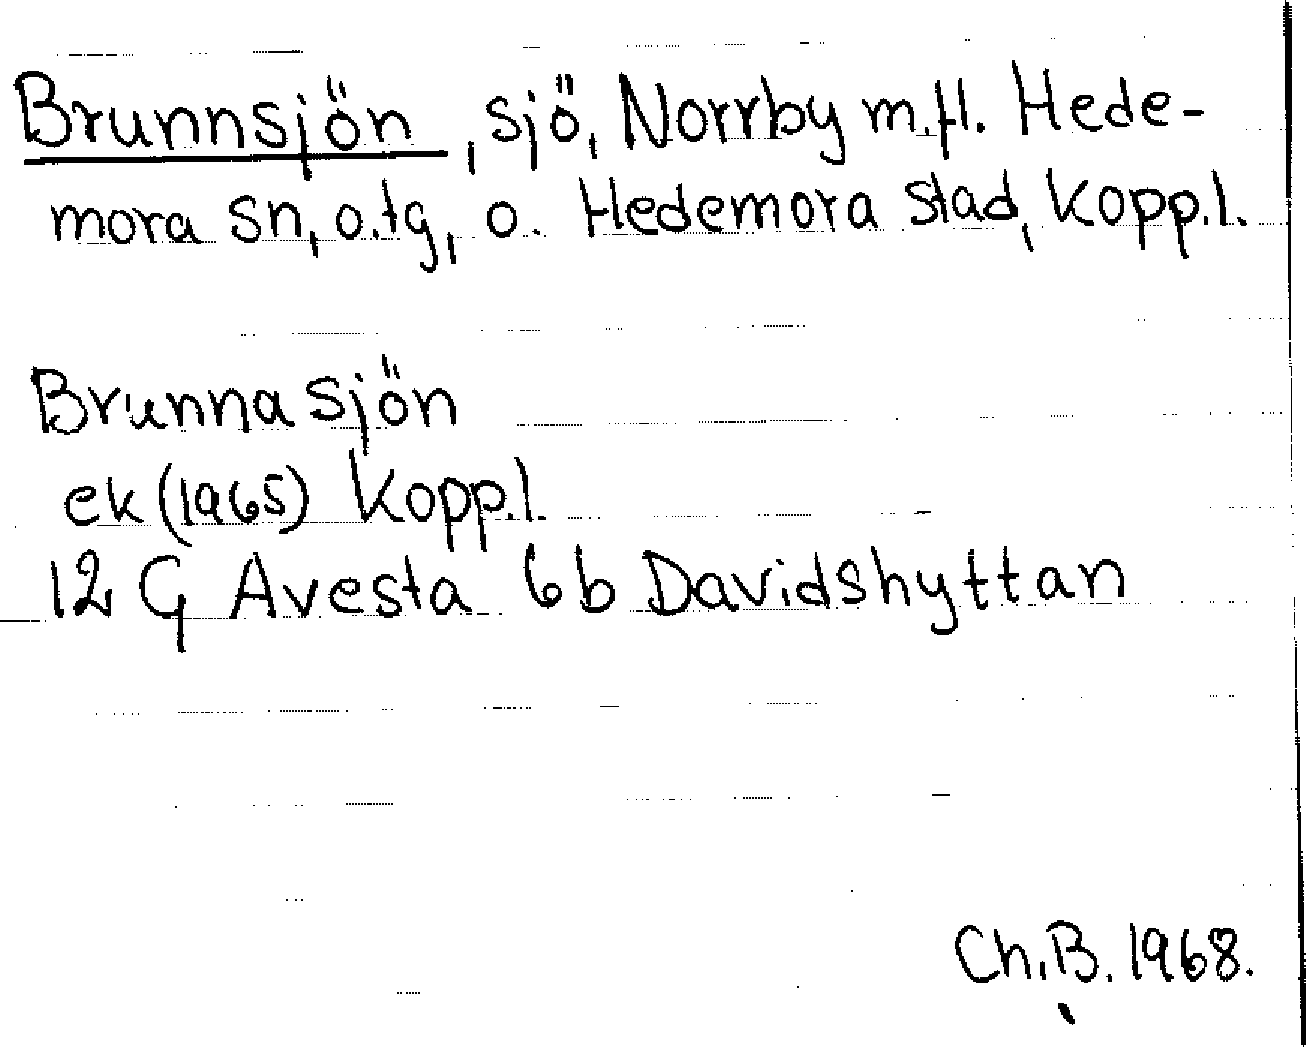 Brunnsjön, sjö, Norrby m.fl. Hede-
mora sn, o.tg, o. Hedemora stad, Kopp.l.
Brunnasjön
ek (1965) Kopp.l.
12 G Avesta 6b Davidshyttan
Ch.B. 1968.